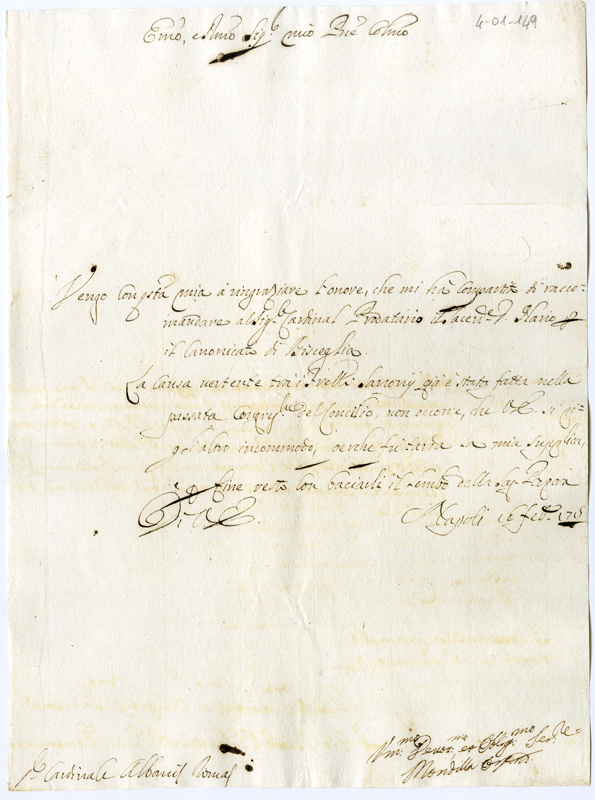 4-01-149
Emo, e Rmo Sig.r mio Pne Colmo
Vengo con qsta mia a ringraziare l'onore, che mi ha compartito di racco=
mandare al Sig.r Cardinal Prodatario il Sacerd.e D. Ilario
il Canonicato di Bisceglia.
La causa vertente tra i Frelli Sarroni qui è stata fatta nella
passata Congreg.ne del Concilio, non occorre, che V.E. si pi=
gri altro incommodo, perche fu tarda la mia supplica,
e p fine resto con baciarle il lembo della Sag. Porpora
Di V.E. Napoli 16 feb.
Um.mo Devot.mo et Oblig.mo Ser.re
Mondilla Orsini
S.r Cardinale Albani Roma